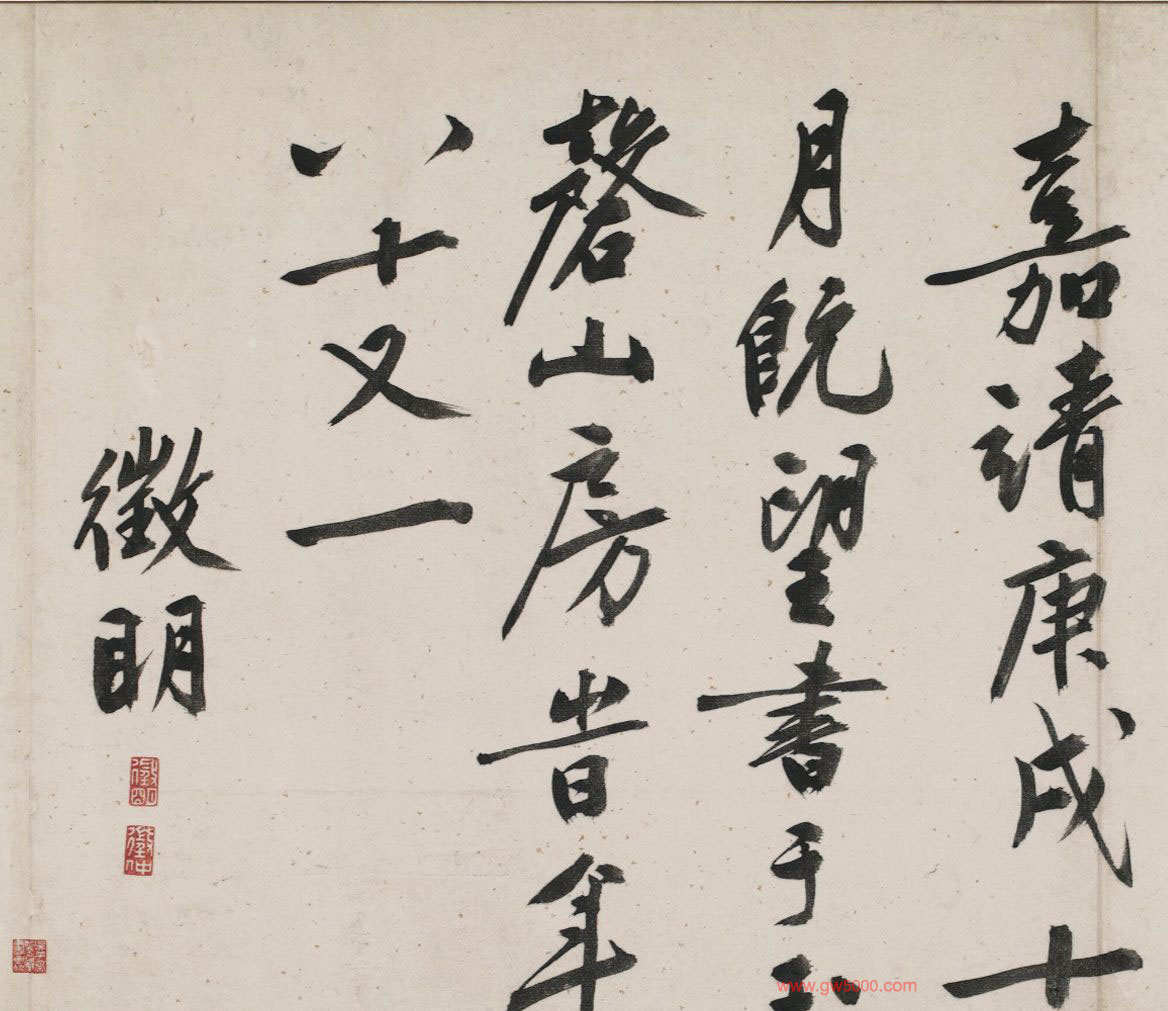 嘉靖庚戌十
月既望書于玉
磬山房峕年
八十又一
徵明
徵明
徵仲
www.gw5000.com